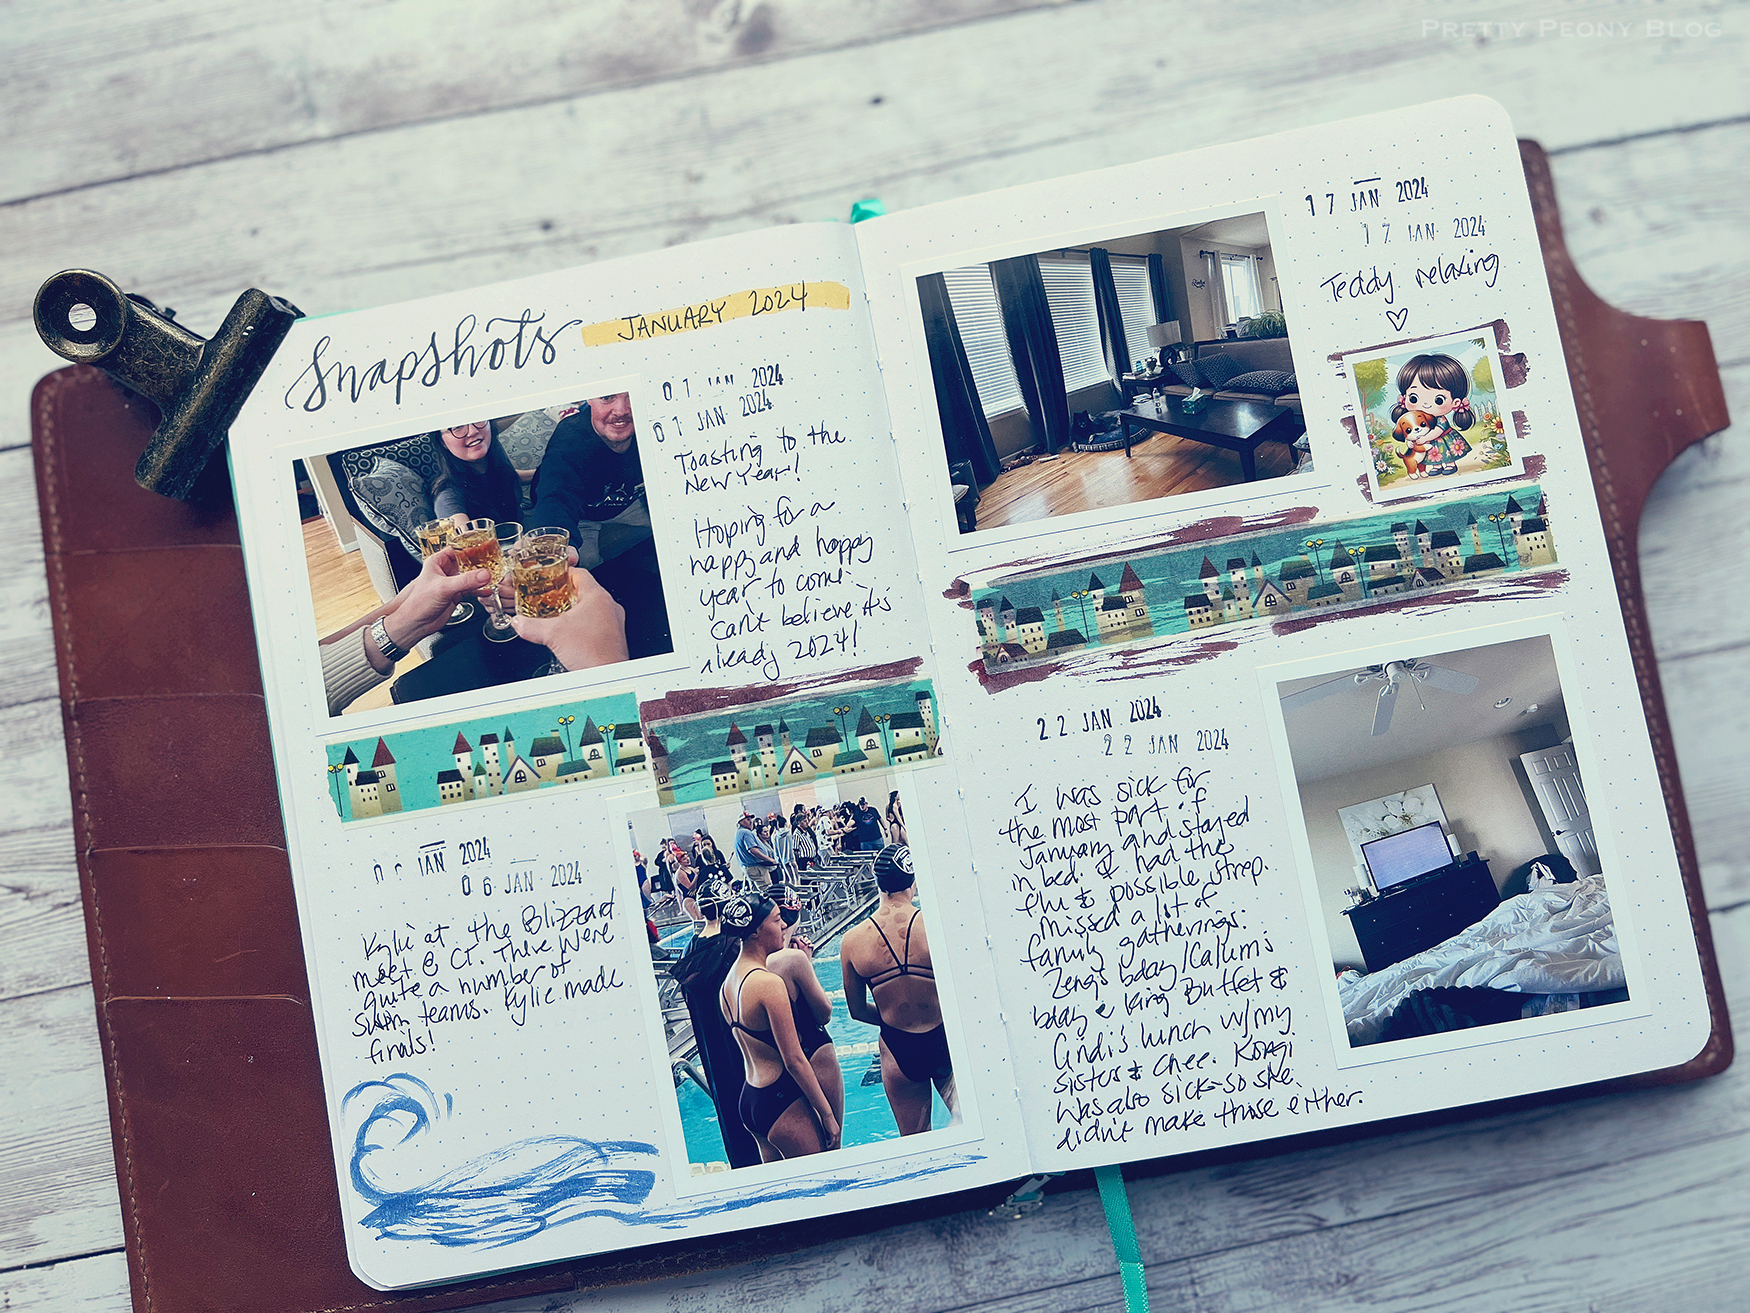 PRETTY PEONY BLOG
Snapshots
JANUARY 2024
01 JAN 2024
01 JAN 2024
Toasting to the
New Year!
Hoping for a
happy and hoppy
year to come.
Can't believe it's
already 2024!
06 JAN 2024
06 JAN 2024
Kylie at the Blizzard
meet @ CT. There were
quite a number of
swim teams. Kylie made
finals!
17 JAN 2024
17 JAN 2024
Teddy relaxing
22 JAN 2024
22 JAN 2024
I was sick for
the most part of
January and stayed
in bed. I had the
flu & possible strep.
Missed a lit of
family gatherings:
bday /Callum's
bday @ King Buffet &
Cindi's lunch w/my
sister & Chee.
was also sick-so she
didn't make those either.